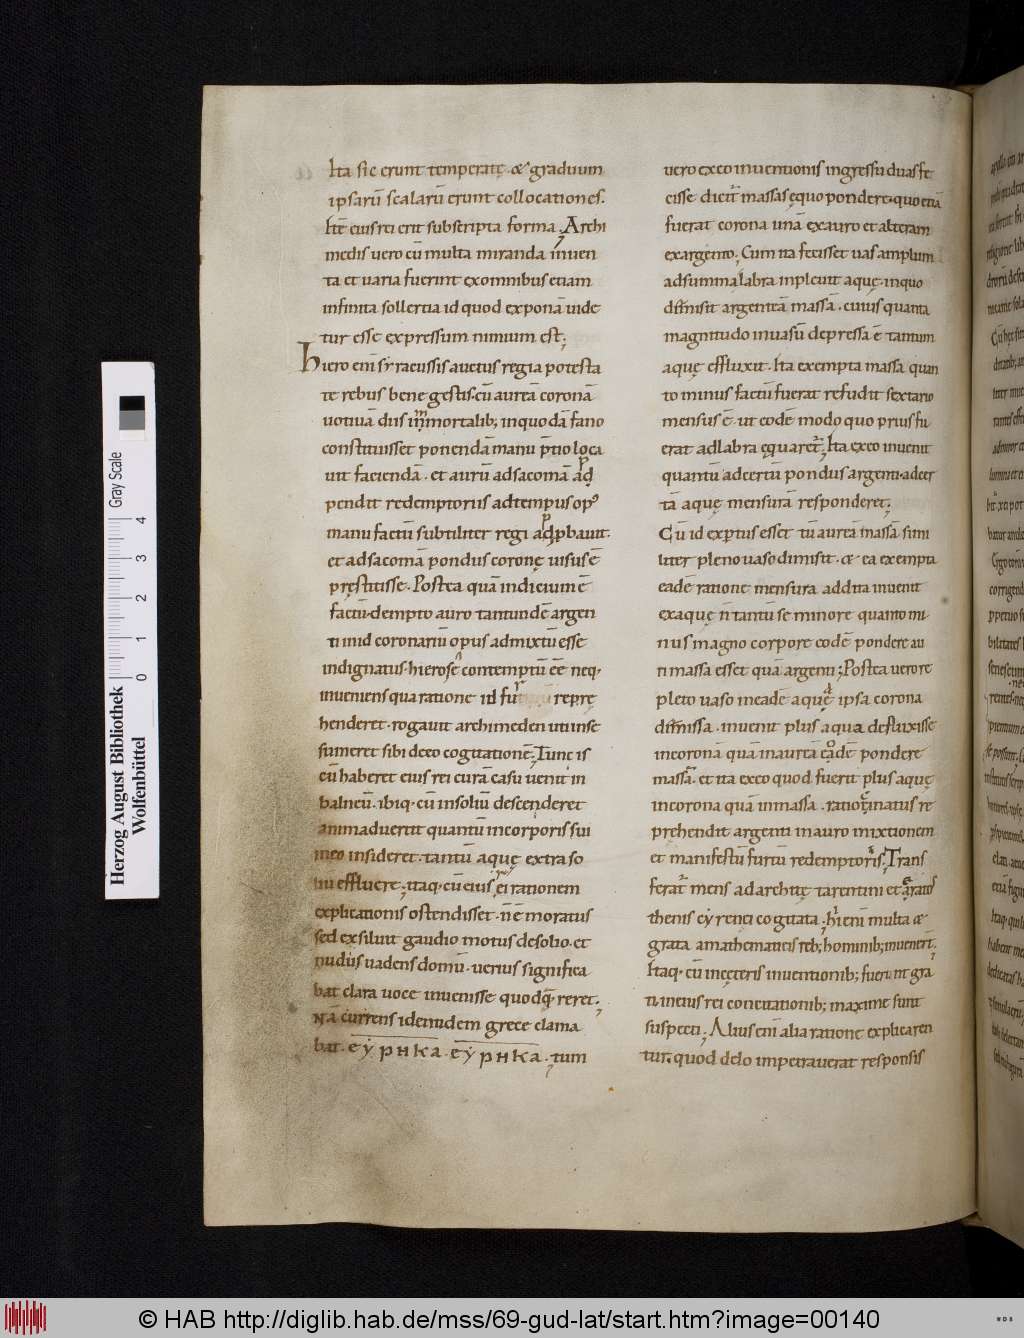 Ita sic erunt temperatę. & graduum
ipsarū scalarū erunt collocationes.
Itē eius rei erit subscripta forma; Archi
medis uero cū multa miranda inuen
ta et uaria fuerint ex omnibus etiam
infinita sollertia id quod exponā uide
tur esse expressum nimium est;
Hiero enī syracussis auctus regia potesta
te rebus bene gestis. cū aureā coronā
uotiuā diis inmortalib; in quodā fano
constituisset ponendā manu p̄tio loca
uit faciendā. et aurū ad sacomā
pendit redemptorius ad tempus op
manu factū subtiliter regi
et ad sacomā pondus coronę uisus ē
pręstitisse. Postea quā indicium ē
factū. dempto auro tantundē argen
ti in id coronariū opus admixtū esse
indignatus. hierose contemptū eē neq.
inueniens qua ratione id repre
henderet. rogauit archimeden uti inse
sumeret sibi de eo cogitationē; Tunc is
cū haberet eius rei curā casu uenit in
balneū. ibiq. cū in soliū descenderet
animaduertit quantū incorporis sui
in eo insideret. tantū aquę extra so
liu effluere; itaq. cū eius ei rationem
explicationis ostendisset. n̄ ē moratus
sed exsiluit gaudio motus de solio. et
nudus uadens domū. uerius significa
bat clara uoce inuenisse quod q̄reret;
Nā currens identidem grece clama
bat. εγρηκα. εγρηκα; tum
uero ex eo inuentionis ingressu duas fe
cisse dicit massas ęquo pondere. quo etiā
fuerat corona unā ex auro et alteram
ex argento; Cum ita fecisset uas amplum
ad summa labra inpleuit aquę. in quo
dimisit argenteā massā. cuius quanta
magnitudo in uasū depressa ē tantum
aquę effluxit. Ita exempta massa quan
to minus factū fuerat refudit sextario
mensus ē. ut eodē modo quo prius fu
erat ad labra ęquaret; Ita ex eo inuenit
quantū ad certū pondus argenti. ad cer
tā aquę mensurā responderet;
Cū id exptus esset tū aureā massā simi
liter pleno uaso dimisit. & ea exempta
eadē ratione mensura addita inuenit
ex aquę n̄ tantū se minore quanto mi
nus magno corpore eodē pondere au
ri massa esset quā argenti; Postea uero re
pleto uaso in eadē aquę ipsa corona
dimissa. inuenit plus aqua defluxisse
in coronā quā in aurea eodē pondere
massa. et ita ex eo quod fuerit plus aquę
in corona quā in massa. ratiotinatus re
prehendit argenti in auro mixtionem
et manifestū furtū redemptoris; Trans
feratr mens ad architę tarentini et
thenis cyrenei cogitata. hi enī multa &
grata a mathematicis reb; hominib; inuenert̄;
Itaq. cū in ceteris inuentionib; fuerunt gra
ti in eius rei concitationib; maxime sunt
suspecti; Alius enī alia ratione explicaren
tur. quod delo imperauerat responsis
Herzog August Bibliothek
Wolfenbüttel
Gray Scale
0 1 2 3 4
© HAB http://diglib.hab.de/mss/69-gud-lat/start.htm?image=00140